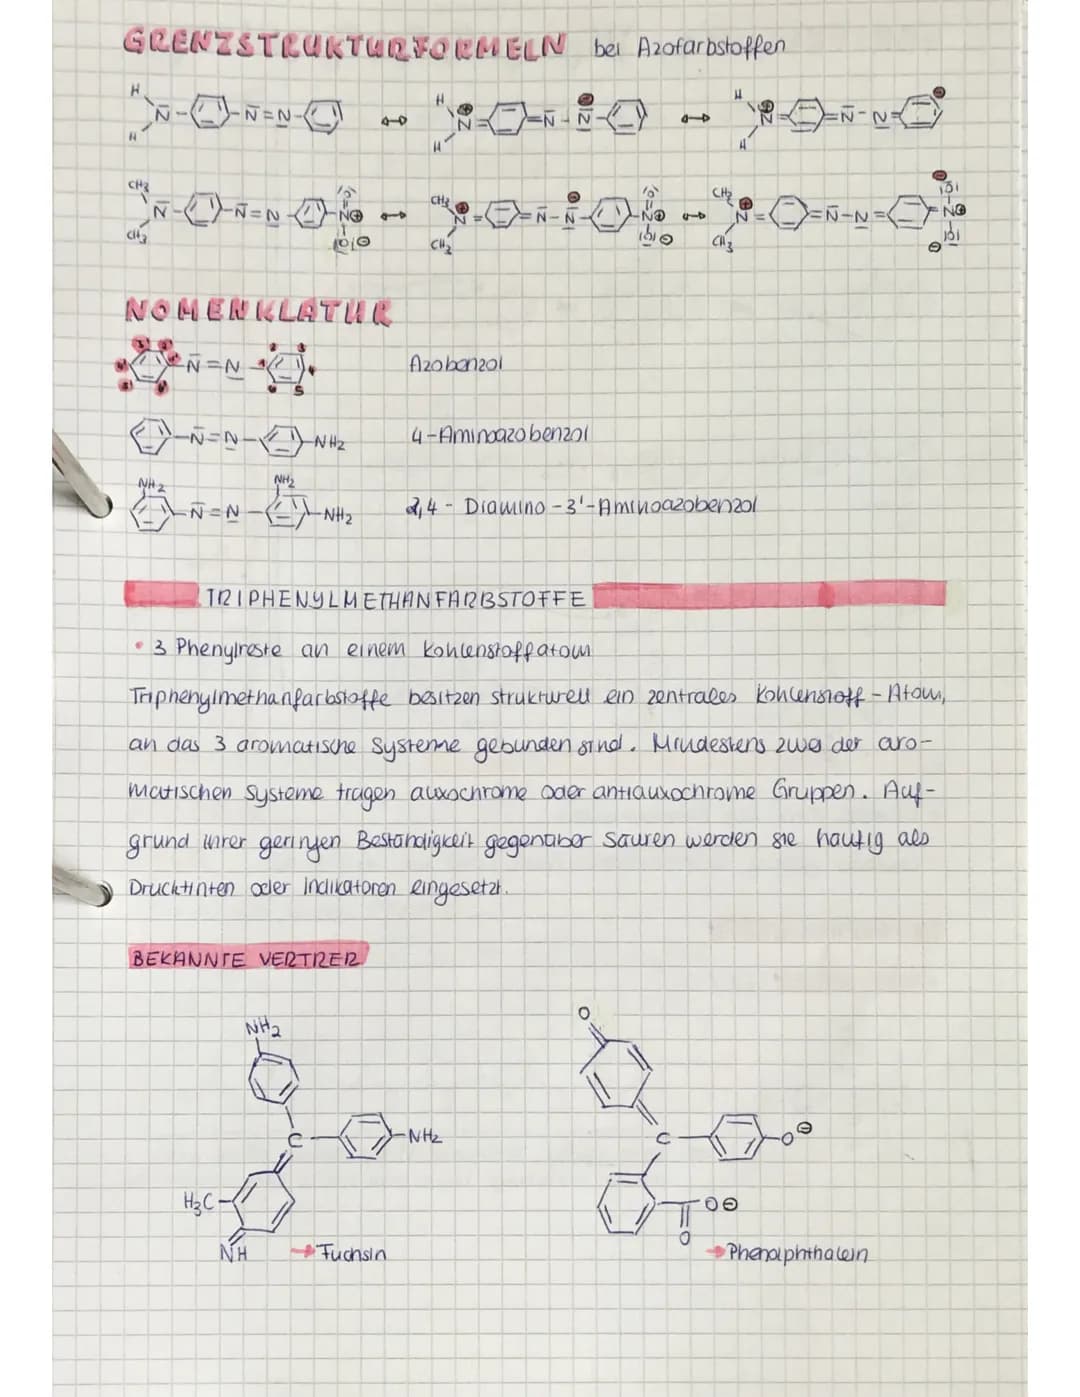 GRENZSTRUKTURFORMELN bei Azofarbstoffen
H N N=N ↔ H N⊕ N-N⊖ ↔ H N⊕ N-N ⊖
H H H
CH3 N N=N N⊕ O O⊖ ↔ CH3 N⊕ N-N⊖ N⊕ O O⊖ ↔ CH3 N⊕ N-N N⊕ O⊖ O⊖
CH3 CH3 CH3
NOMENKLATUR
N=N Azobenzol
N=N NH2 4-Aminoazobenzol
NH2 N=N NH2 NH2 2,4 - Diamino -3'-Aminoazobenzol
TRIPHENYLMETHANFARBSTOFFE
• 3 Phenylreste an einem Kohlenstoffatom
Triphenylmethanfarbstoffe besitzen strukturell ein zentrales Kohlenstoff - Atom,
an das 3 aromatische Systeme gebunden sind. Mindestens zwei der aro-
matischen Systeme tragen auxochrome oder antiauxochrome Gruppen. Auf-
grund ihrer geringen Beständigkeit gegenüber Säuren werden sie häufig als
Drucktinten oder Indikatoren eingesetzt.
BEKANNTE VERTRER
NH2
C
NH2
H3C
NH
→ Fuchsin
O
C
O⊖
O⊖
O
→ Phenolphthalein